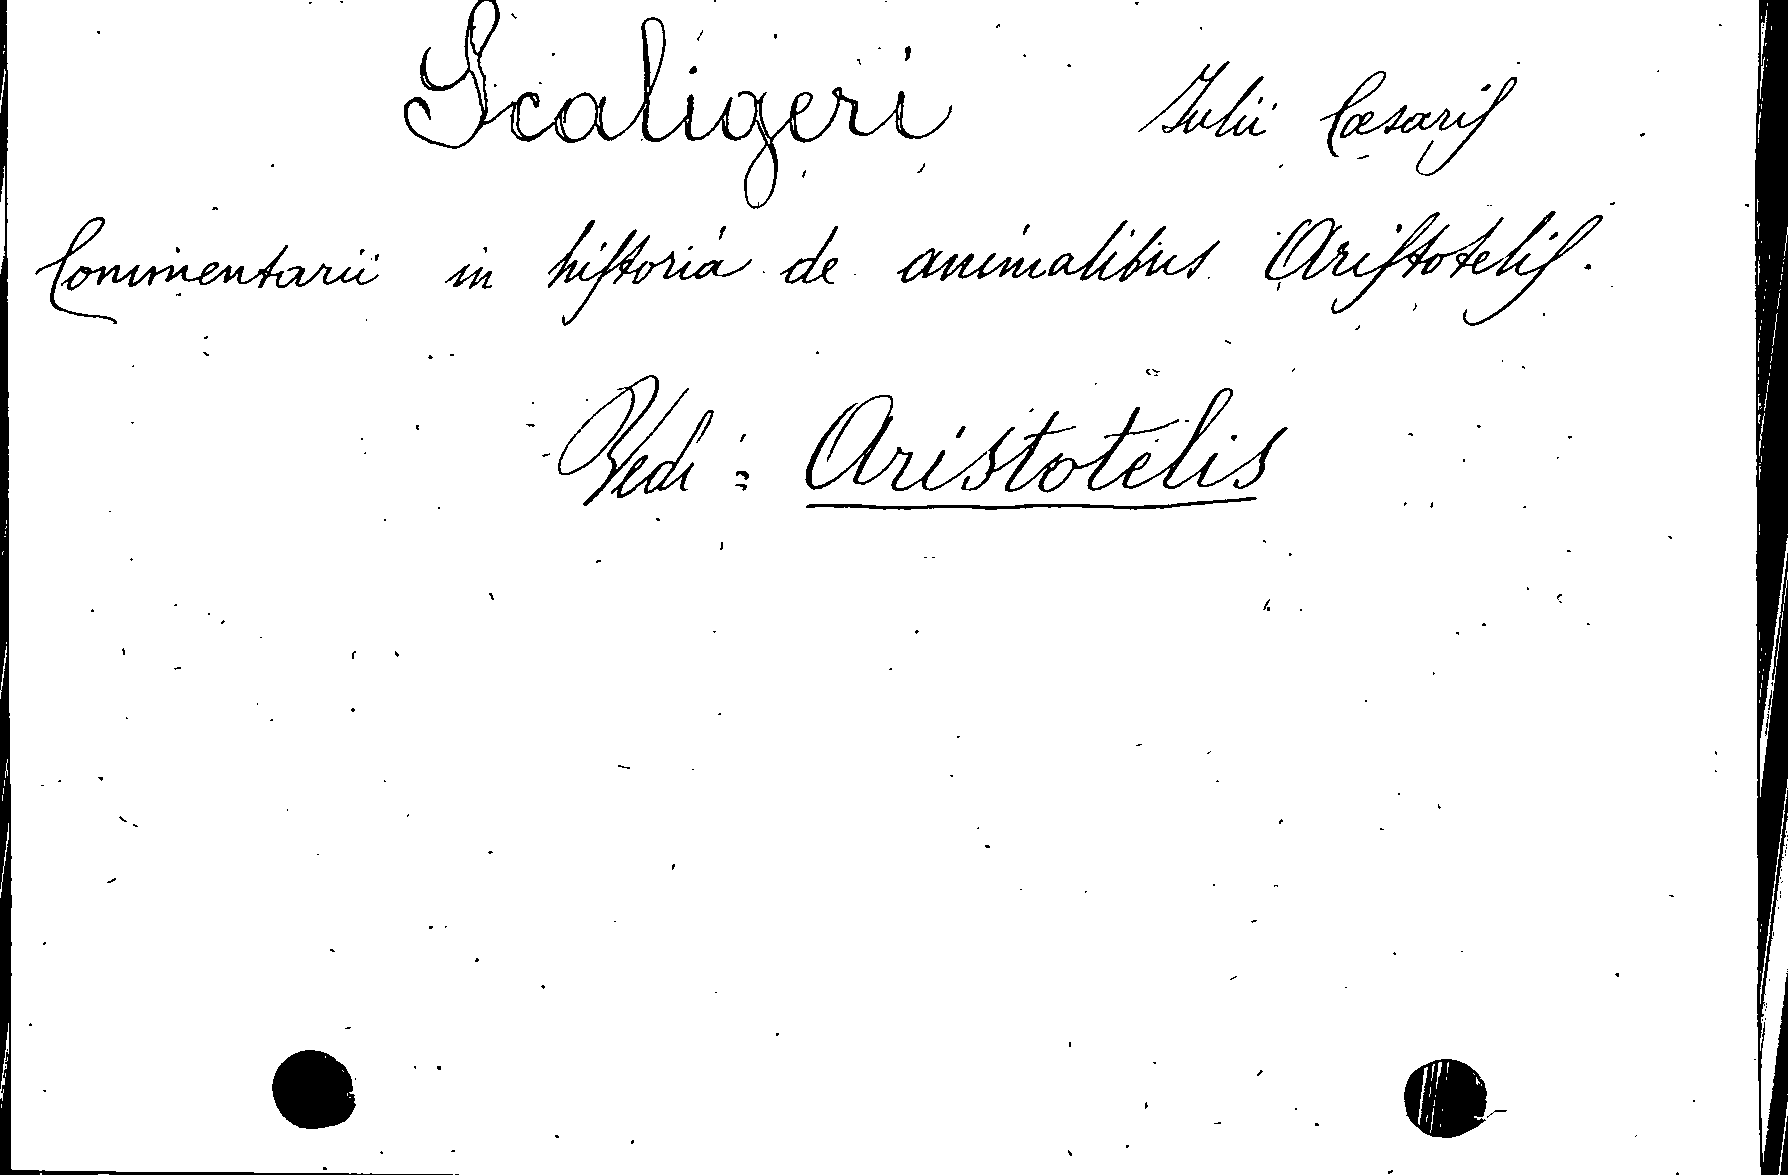 Scaligeri Iulii Cæsaris
Commentarii in historia de animalibus Aristotelis.
Vedi: Aristotelis